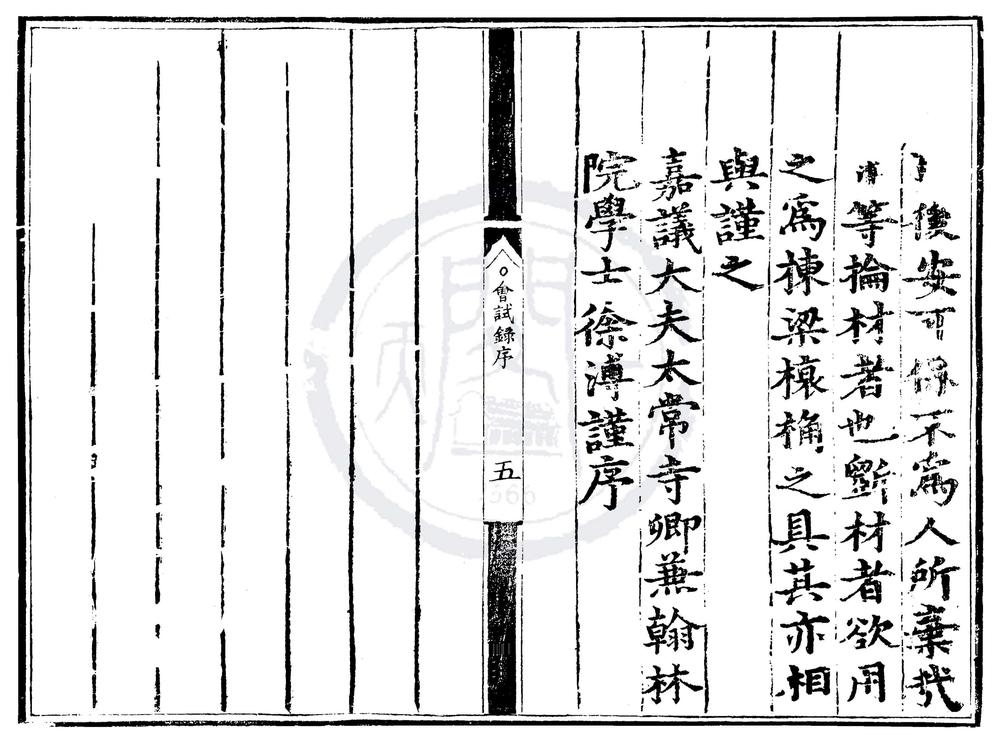 樸安可保不為人所棄哉
溥等掄材者也斵材者欲用
之為棟梁榱桷之具其亦相
與謹之
嘉議大夫太常寺卿兼翰林
院學士徐溥謹序
會試錄序
五